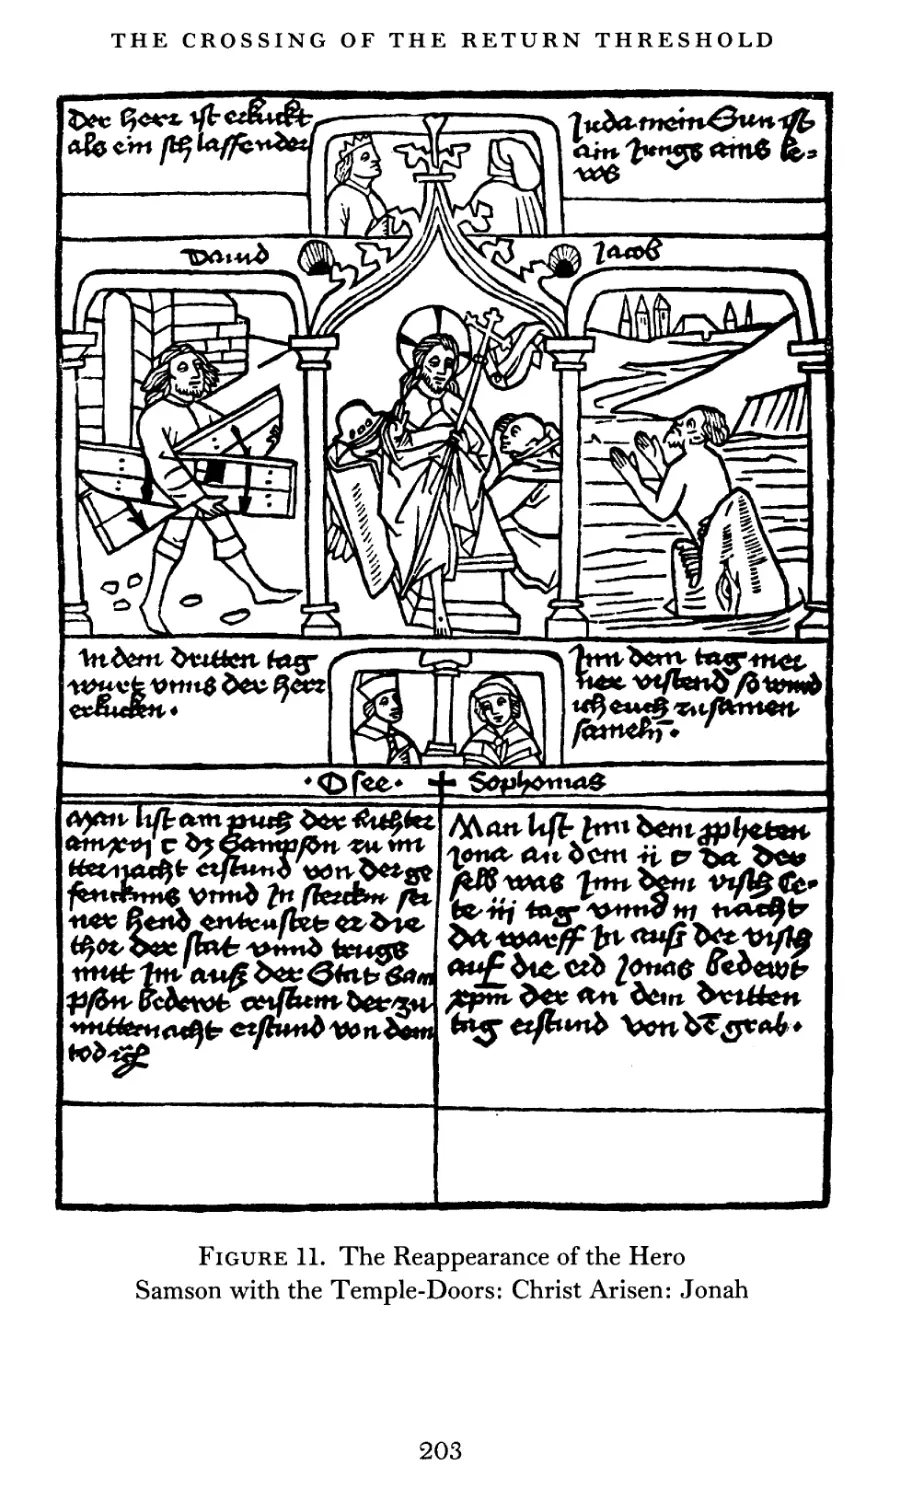 THE CROSSING OF THE RETURN THRESHOLD
Der herr ist erkuckt
als ein schlaffender
Juda mein Sun ist
ain Jungs ains le=
ws
Dauid
Jacob
In dem dritten tag
wurt vnns der herr
erkucken .
Jnn dem tag mei
ner vrstend so wird
ich euch zusamen
sameln .
. Osee .
Sophonias
Man list am puch der Richter
am xvj c dz Sampson zu mi
tternacht erstund von der ge
fencknus vnnd Jn sterckin sei
ner hend entrustet er die
thor der stat vnnd trugs
mitt Jm auß der Stat Sam
pson bedewt cristum der zu
mitternacht erstund von dem
tod
Man list Jnn dem ppheten
Jona an dem ij c da der
selb was Jnn dem visch Ce
te iij tag vnnd iij nacht
da warff Jn auß der visch
auf die erd Jonas bedewt
xpm der an dem dritten
tag erstund von dē grab .
FIGURE 11. The Reappearance of the Hero
Samson with the Temple-Doors: Christ Arisen: Jonah
203